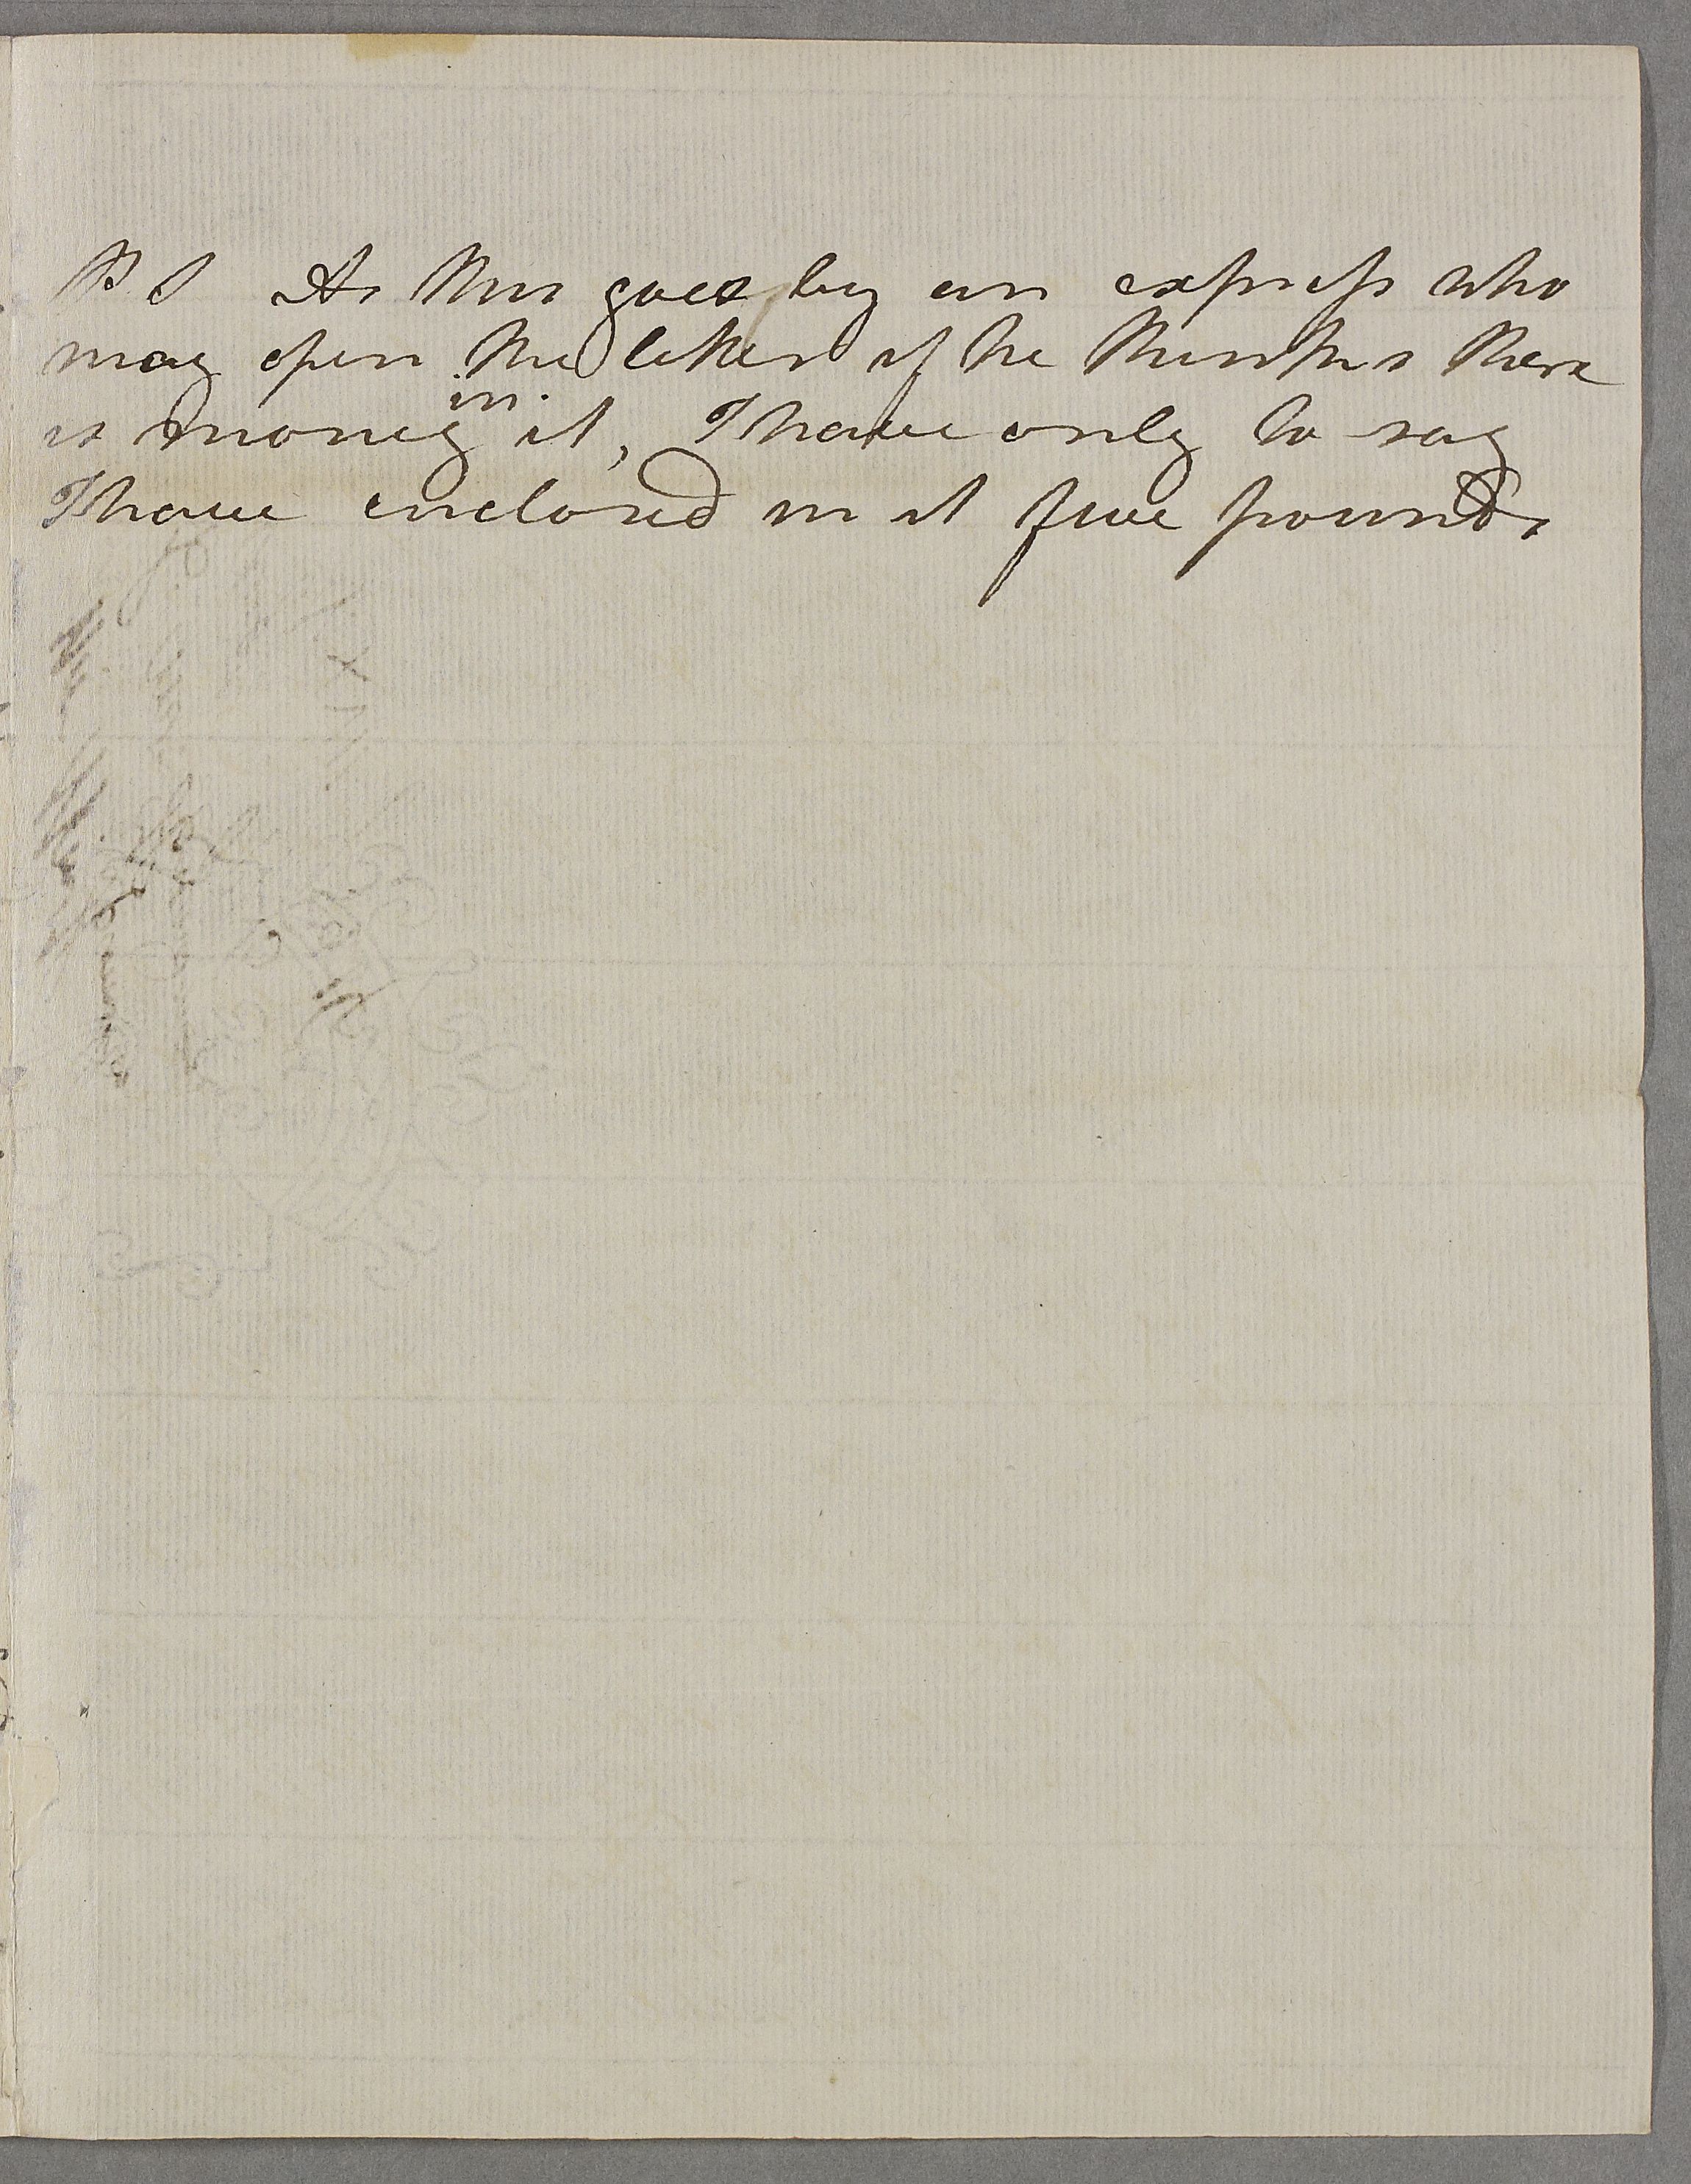 P S As this goes by an express who
may open the letter if he thinks there
is money in it, I have only to say
I have enclosed in it five pounds